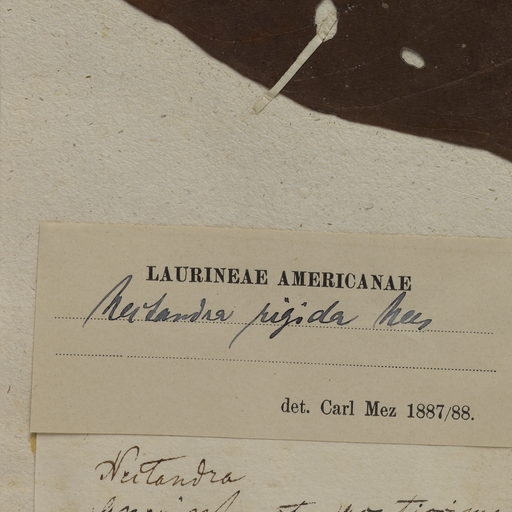 LAURINEAE AMERICANAE
Nectandra rigida Nees
det. Carl Mez 1887/88.
Nectandra